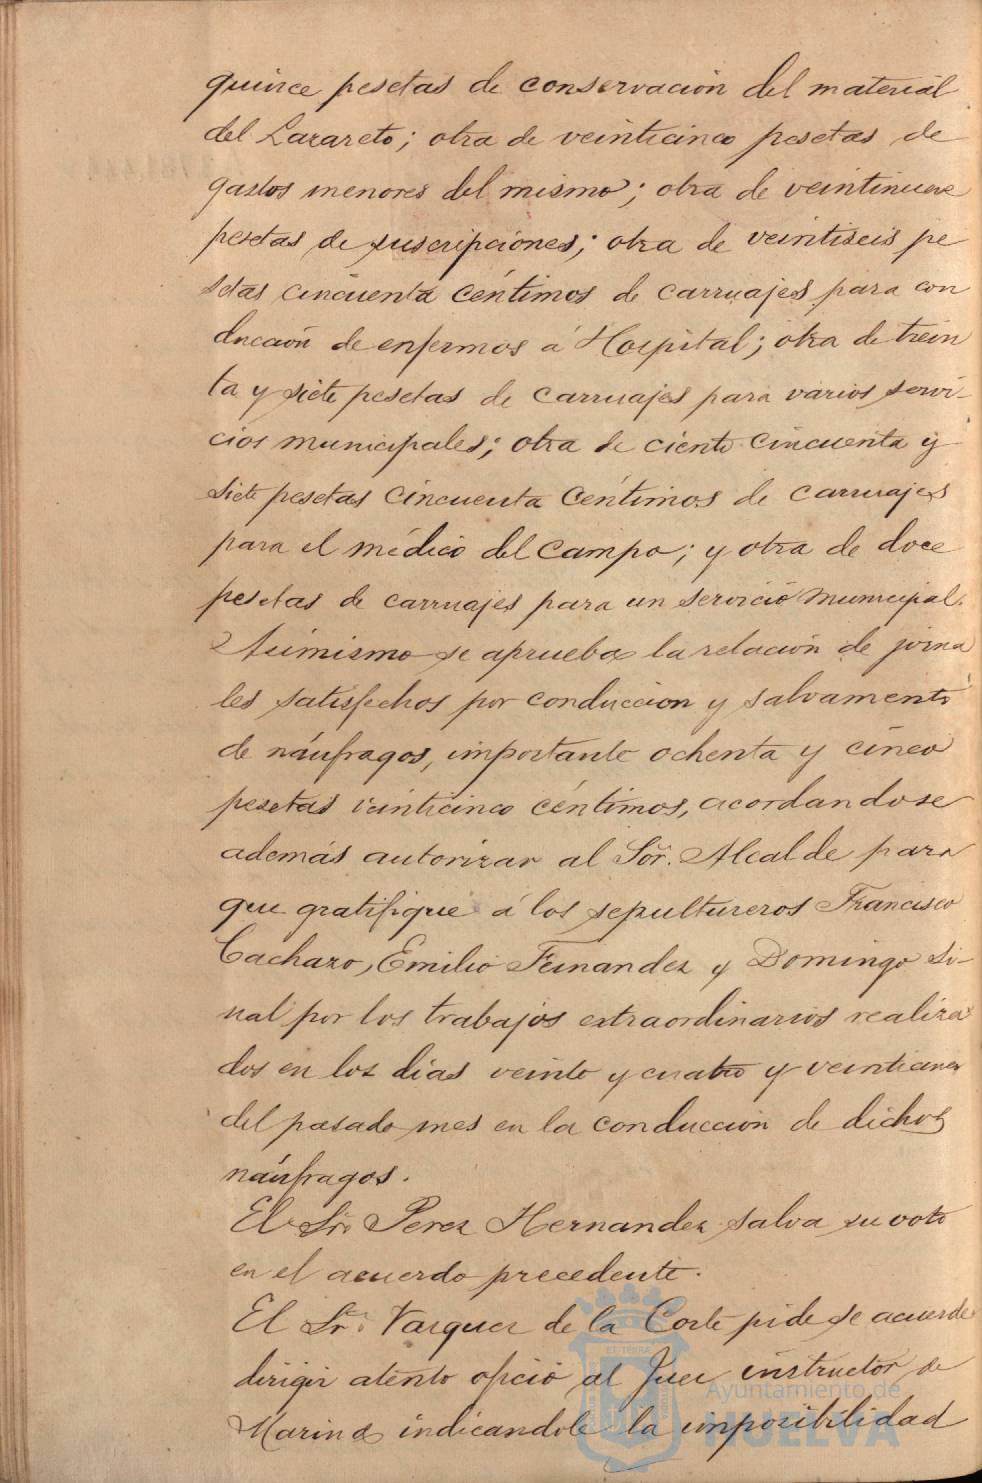 quince pesetas de conservación del material
del Lazareto; otra de veinticinco pesetas de
gastos menores del mismo; otra de veintinueve
pesetas de suscripciones; otra de veintiseis pe
setas cincuenta céntimos de carruajes para con
ducción de enfermos á Hospital; otra de trein
ta y siete pesetas de carruajes para varios servi-
cios municipales; otra de ciento cincuenta y
siete pesetas cincuenta céntimos de carruajes
para el médico del campo; y otra de doce
pesetas de carruajes para un servicio municipal.
Asimismo se aprueba la relación de jorna
les satisfechos por conduccion y salvamento
de náufragos, importante ochenta y cinco
pesetas veinticinco céntimos, acordandose
además autorizar al Sor. Alcalde para
que gratifique á los sepultureros Francisco
Cachazo, Emilio Fernandez y Domingo Si-
nal por los trabajos extraordinarios realiza
dos en los días veinte y cuatro y veinticinco
del pasado mes en la conducción de dichos
náufragos.
El Sr. Perez Hernandez salva su voto
en el acuerdo precedente.
El Sr. Vazquez de la Corte pide se acuerde
dirigir atento oficio al Juez instructor de
Marina indicandole la imposibilidad
Ayuntamiento de
HUELVA